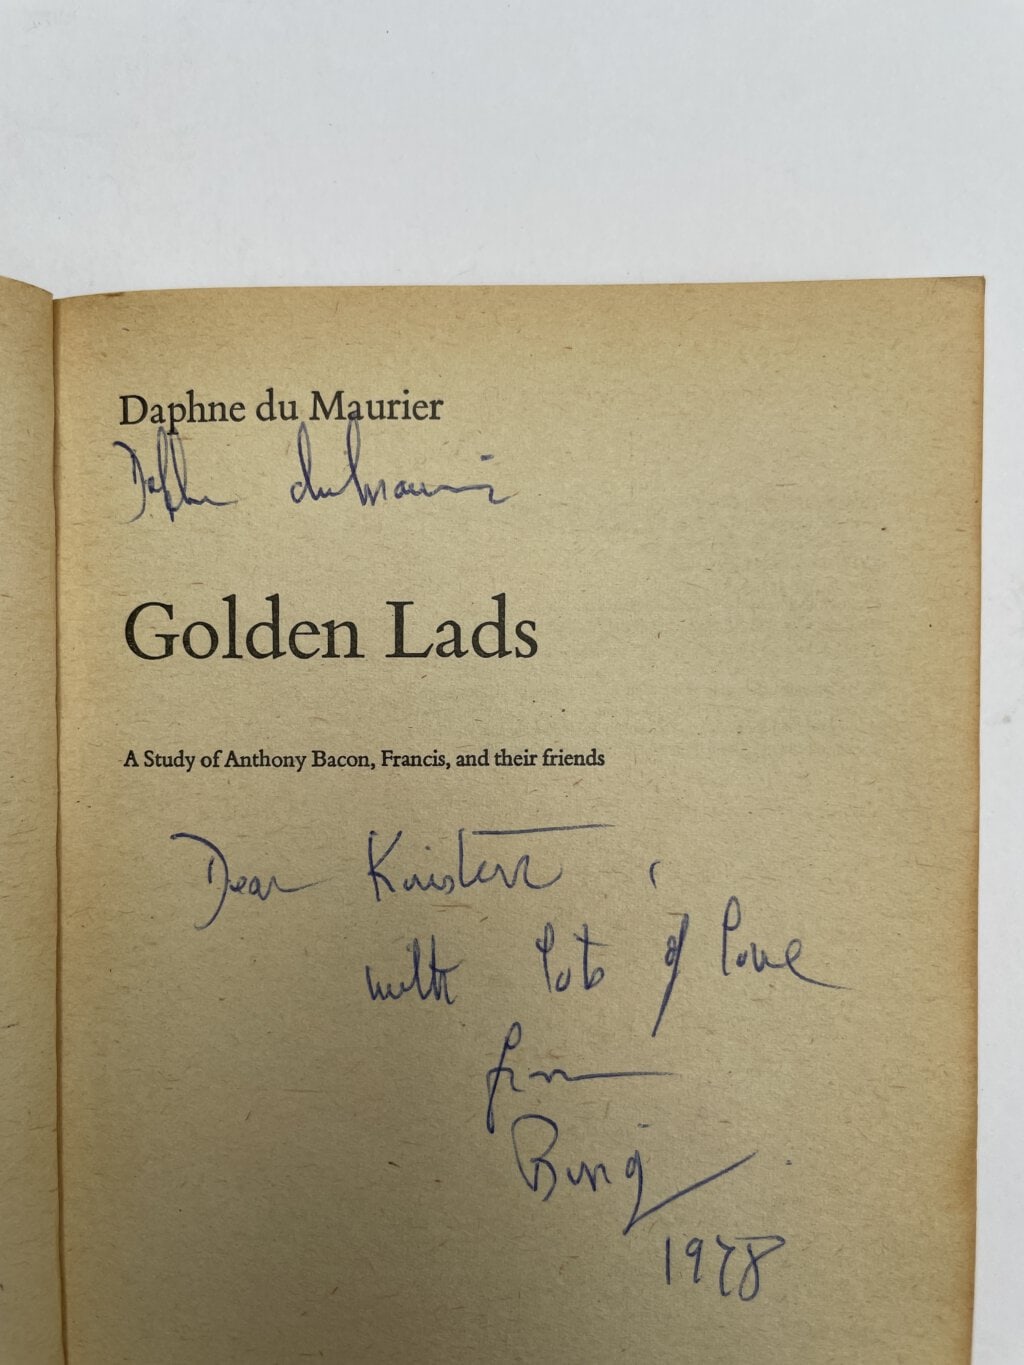 Daphne du Maurier
Daphne du Maurier
Golden Lads
A Study of Anthony Bacon, Francis, and their friends
Dear Kristen,
with lots of love
from
Bing
1978